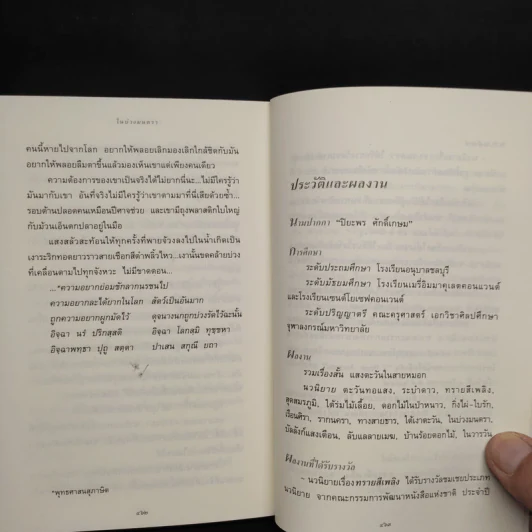 ในบ่วงมนตรา
คนนี้หายไปจากโลก อยากให้พลอยเลิกมองเลิกใกล้ชิดกับมัน
อยากให้พลอยลืมตาขึ้นแล้วมองเห็นเขาแต่เพียงคนเดียว
ความต้องการของเขาเป็นจริงได้ไม่ยากนี่นะ...ไม่มีใครรู้ว่า
มันมากับเขา อันที่จริงไม่มีใครรู้ว่าเขาตามมาที่นี่เสียด้วยซ้ำ...
รอบด้านปลอดคนเหมือนปีศาจช่วย และเขามีถุงพลาสติกใบใหญ่
กับม้วนเอ็นตกปลาอยู่ในมือ
แสงสลัวสะท้อนให้ทุกครั้งที่พายจ้วงลงไปในน้ำเกิดเป็น
เงาระริกทอดยาวราวสายเชือกสีดำพลิ้วไหว...เงานั้นขดคล้ายบ่วง
ที่เคลื่อนตามไปทุกจังหวะ ไม่มีขาดตอน...
..."ความอยากย่อมชักลากนรชนไป
ความอยากละได้ยากในโลก สัตว์เป็นอันมาก
ถูกความอยากผูกมัดไว้ ดุจนางนกถูกบ่วงรัดไว้ฉะนั้น
อิจฺฉา นรํ ปริกสฺสติ อิจฺฉา โลกสฺมิ ทุชฺชหา
อิจฺฉาพทฺธา ปุถู สตฺตา ปาเสน สกุณี ยถา
*พุทธศาสนสุภาษิต
๔๖๒
ประวัติและผลงาน
นามปากกา "ปิยะพร ศักดิ์เกษม"
การศึกษา
ระดับประถมศึกษา โรงเรียนอนุบาลชลบุรี
ระดับมัธยมศึกษา โรงเรียนแมรี่อิมมาคุเลตคอนแวนต์
และโรงเรียนเซนต์โยเซฟคอนเวนต์
ระดับปริญญาตรี คณะครุศาสตร์ เอกวิชาศิลปศึกษา
จุฬาลงกรณ์มหาวิทยาลัย
ผลงาน
รวมเรื่องสั้น แสงตะวันในสายหมอก
นวนิยาย ตะวันทอแสง, ระบำดาว, ทรายสีเพลิง,
สุดสมรภูมิ, ใต้ร่มไม้เลื้อย, ดอกไม้ในป่าหนาว, กิ่งไผ่-ใบรัก,
เรือนศิรา, รากนครา, ทางสายธาร, ใต้เงาตะวัน, ในบ่วงมนตรา,
บัลลังก์แสงเดือน, ลับแลลายเมฆ, บ้านร้อยดอกไม้, ในวารวัน
ผลงานที่ได้รับรางวัล
- นวนิยายเรื่องทรายสีเพลิง ได้รับรางวัลชมเชยประเภท
นวนิยาย จากคณะกรรมการพัฒนาหนังสือแห่งชาติ ประจำปี
๔๖๓